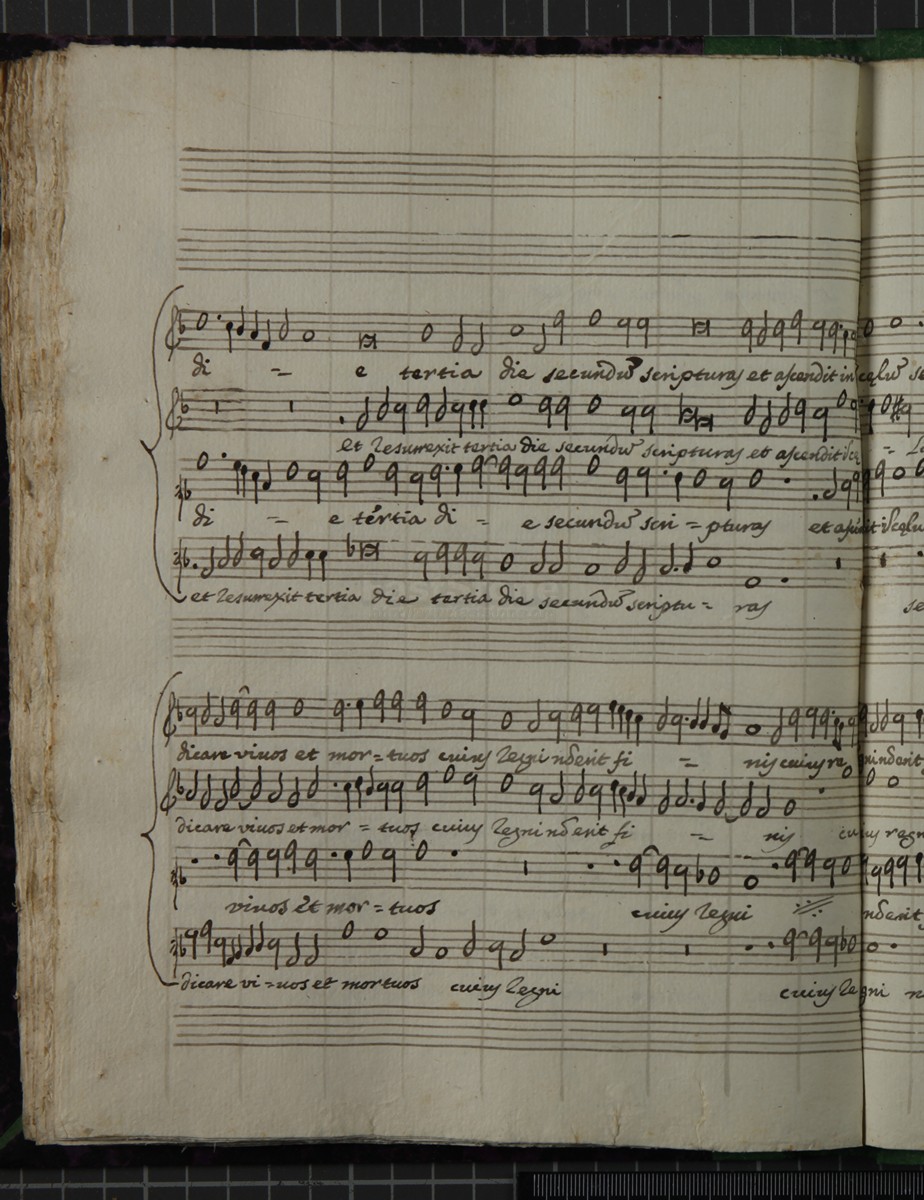 di = e tertia die secundũ scripturas et ascendit in celũ
et resurrexit tertia die secundũ scripturas et ascendit
di = e tértia di = e secundũ scri = pturas et
et resurrexit tertia die tertia die secundũ scriptu = ras se
dicare viuos et mor = tuos cuius regni nõ erit fi = nis cuius re gni nõ erit
dicare viuos et mor = tuos cuius regni nõ erit fi = nis cuius
viuos ét mor = tuos cuius regni nõ erit
dicare vi = uos et mortuos cuius regni cuius regni